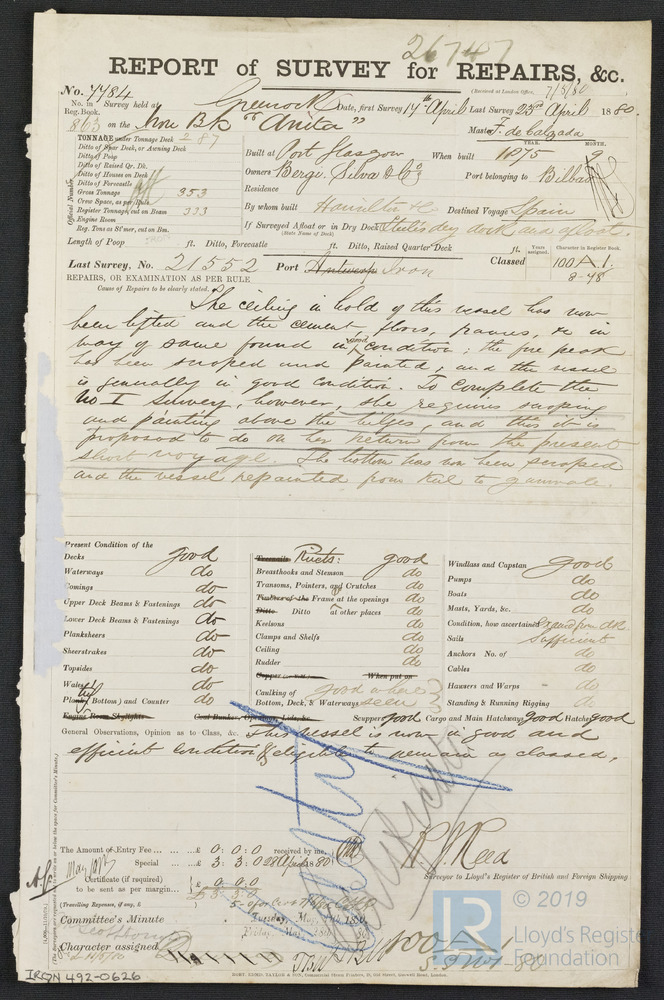 26747
REPORT of SURVEY for REPAIRS, &c.
(Received at London Office, 7/5/80
No. 7784
No. in Survey held at Greenock Date, first Survey 14th April Last Survey 23rd April 1880
Reg. Book.
863 on the Iron Bk "Anita" Master F. de Calzada
TONNAGE under Tonnage Deck 287
Ditto of Spar Deck, or Awning Deck
Ditto of Poop
Ditto of Raised Qr. Dk.
Ditto of Houses on Deck
Ditto of Forecastle
Gross Tonnage 353
Crew Space, as per Rule
Register Tonnage, cut on Beam 333
Engine Room
Reg. Tons as St'mer, cut on Bm.
Official Number
Built at Port Glasgow When built YEAR. 1875 MONTH. 9
Owners Berge, Silva & Co. Port belonging to Bilbao
Residence
By whom built Hamilton & Co Destined Voyage Spain
If Surveyed Afloat or in Dry Dock dry dock and afloat.
(State Name of Dock)
Length of Poop ft. Ditto, Forecastle ft. Ditto, Raised Quarter Deck ft. Years assigned. Character in Register Book.
Last Survey, No. 21552 Port Antwerp Iron Classed 100 A1.
8-78
REPAIRS, OR EXAMINATION AS PER RULE
Cause of Repairs to be clearly stated.
The ceiling in hold of this vessel has now
been lifted and the cement, floors, frames, &c in
way of same found in good condition; the fore peak
has been scraped and painted, and the vessel
is generally in good condition. To complete the
No I Survey, however, she requires scraping
and painting above the bilges, and this it is
proposed to do on her return from the present
short voyage. The bottom has now been scraped
and the vessel repainted from keel to gunwale.
Present Condition of the
Decks good
Waterways do
Comings do
Upper Deck Beams & Fastenings do
Lower Deck Beams & Fastenings do
Planksheers do
Sheerstrakes do
Topsides do
Wales do
Plating Bottom) and Counter do
Engine Room Skylights Coal Bunker, Openings, Lids, &c.
Treenails Rivets: good
Breasthooks and Stemson do
Transoms, Pointers, and Crutches do
Timbers of the Frame at the openings do
Ditto Ditto at other places do
Keelsons do
Clamps and Shelfs do
Ceiling do
Rudder do
Copper When put on
Caulking of Bottom, Deck, & Waterways good where seen
Windlass and Capstan good
Pumps do
Boats do
Masts, Yards, &c. do
Condition, how ascertained
Sails Sufficient
Anchors No. of do
Cables do
Hawsers and Warps do
Standing & Running Rigging do
Scuppers good Cargo and Main Hatchways good Hatches good
General Observations, Opinion as to Class, &c. This vessel is now in good and
efficient condition & eligible to remain as classed.
The Amount of Entry Fee £ 0:0:0 received by me,
Special £ 3:3:0 28 April 1880
Certificate (if required) £ 0:0:0
to be sent as per margin
(Travelling Expenses, if any, £
R. J. Reed
Surveyor to Lloyd's Register of British and Foreign Shipping
Committee's Minute
Character assigned
IRON 492-0626
© 2019
Lloyd's Register
Foundation